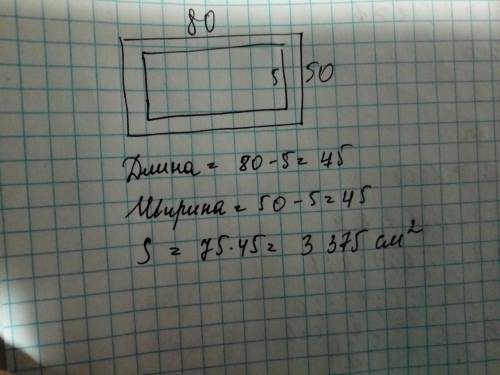 80
5 50
Длина = 80 - 5 = 75
Ширина = 50 - 5 = 45
S = 75 · 45 = 3 375 см²